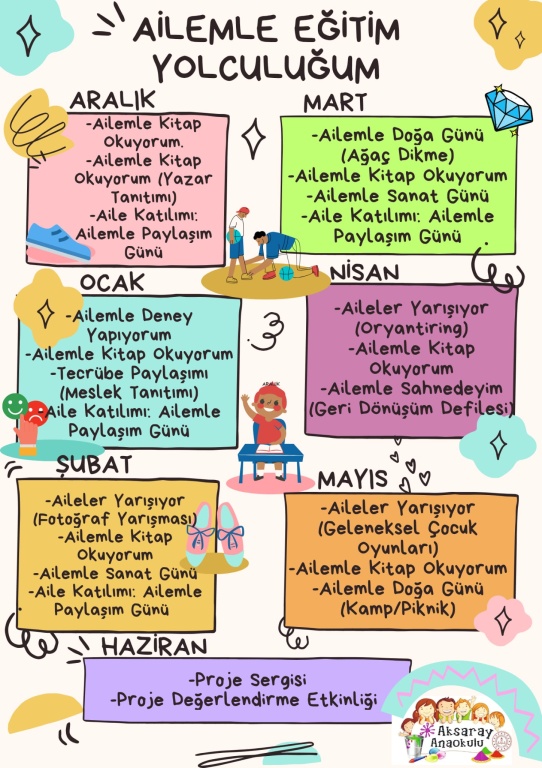 AİLEMLE EĞİTİM
YOLCULUĞUM
ARALIK
-Ailemle Kitap
Okuyorum.
-Ailemle Kitap
Okuyorum (Yazar
Tanıtımı)
-Aile Katılımı:
Ailemle Paylaşım
Günü
MART
-Ailemle Doğa Günü
(Ağaç Dikme)
-Ailemle Kitap Okuyorum
-Ailemle Sanat Günü
-Aile Katılımı: Ailemle
Paylaşım Günü
OCAK
-Ailemle Deney
Yapıyorum
-Ailemle Kitap Okuyorum
-Tecrübe Paylaşımı
(Meslek Tanıtımı)
-Aile Katılımı: Ailemle
Paylaşım Günü
NİSAN
-Aileler Yarışıyor
(Oryantiring)
-Ailemle Kitap
Okuyorum
-Ailemle Sahnedeyim
(Geri Dönüşüm Defilesi)
ARALIK
ŞUBAT
-Aileler Yarışıyor
(Fotoğraf Yarışması)
-Ailemle Kitap
Okuyorum
-Ailemle Sanat Günü
-Aile Katılımı: Ailemle
Paylaşım Günü
MAYIS
-Aileler Yarışıyor
(Geleneksel Çocuk
Oyunları)
-Ailemle Kitap Okuyorum
-Ailemle Doğa Günü
(Kamp/Piknik)
HAZİRAN
-Proje Sergisi
-Proje Değerlendirme Etkinliği
Aksaray
Anaokulu